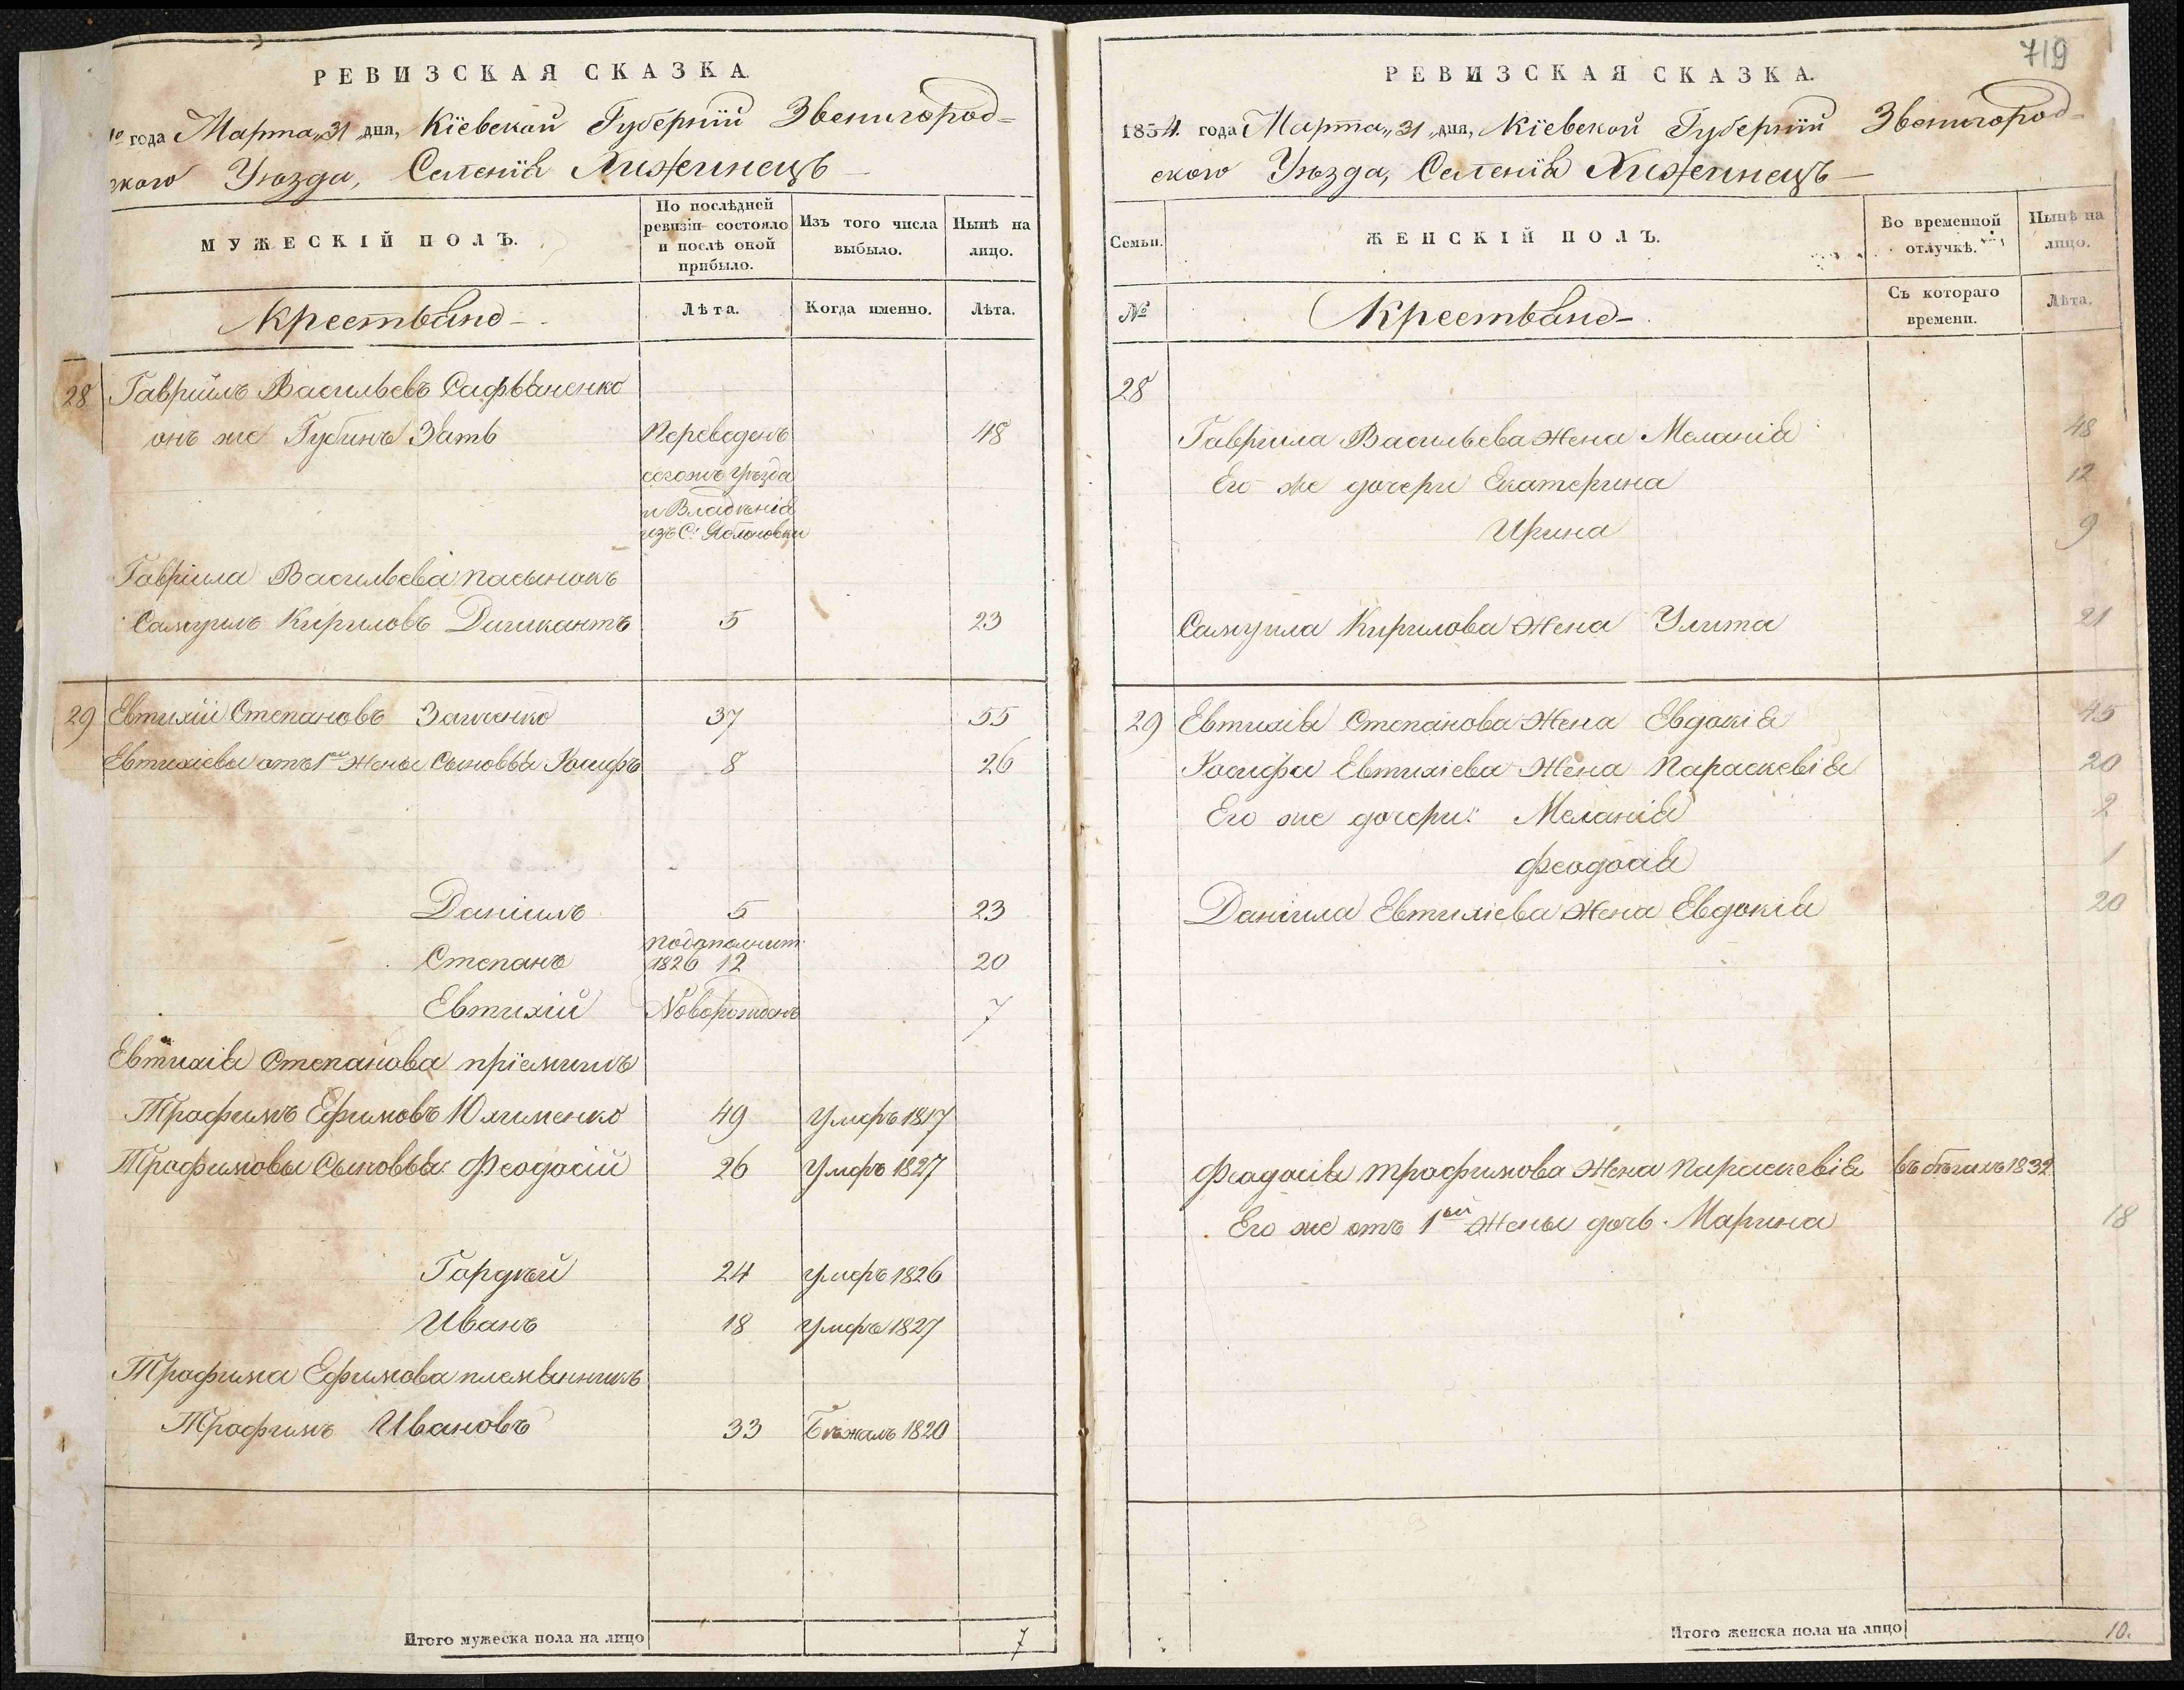 РЕВИЗСКАЯ СКАЗКА.
го года Марта „31 „дня, Кіевской Губерніи Звенигород=
скаго Уѣзда, Селенія
МУЖЕСКІЙ ПОЛЪ.
По послѣдней ревизіи состояло и послѣ оной прибыло.
Изъ того числа выбыло.
Нынѣ на лицо.
Крестьяне
Лѣта.
Когда именно.
Лѣта.
28 Гавріилъ Васильевъ Сафьяненко
онъ же Губинъ Зать Переведенъ 48
сегожъ Уѣзда
и Владѣнія
изъ С. Яблоновки
Гавріила Васильева пасынокъ
Самуилъ Кириловъ 5 23
29 Евтихій Степановъ Заиченко 37 55
Евтихіевы отъ 1ой Жены Сыновья Іосифъ 8 26
Даніилъ 5 23
Степанъ подополнит. 1826 12 20
Евтихій Новорожденъ 7
Евтихія Степанова пріемышъ
Трофимъ Ефимовъ Юхименко 49 Умеръ 1817
Трофимовы Сыновья: Феодосій 26 Умеръ 1827
Гордѣй 24 умеръ 1826
Иванъ 18 умеръ 1827
Трофима Ефимова племянникъ
Трофимъ Ивановъ 33 Бѣжалъ 1820
Итого мужеска пола на лицо 7
719
РЕВИЗСКАЯ СКАЗКА.
1834. года Марта „31 „дня, Кіевской Губерніи Звенигород=
скаго Уѣзда, Селенія
Семьи.
ЖЕНСКІЙ ПОЛЪ.
Во временной отлучкѣ.
Нынѣ на лицо.
№
Крестьяне
Съ котораго времени.
Лѣта.
28
Гавріила Васильева Жена Меланія 48
Его же дочери Екатерина 12
Ирина 9
Самуила Кирилова Жена Улита 21
29 Евтихія Степанова Жена Евдокія 45
Іосифа Евтихіева Жена Параскевія 20
Его же дочери: Меланія 2
Феодосія 1
Даніила Евтихіева Жена Евдокія 20
Феодосія Трофимова Жена Параскевія въ бѣгахъ 1832
Его же отъ 1ой Жены дочь Марина 18
Итого женска пола на лицо 10.